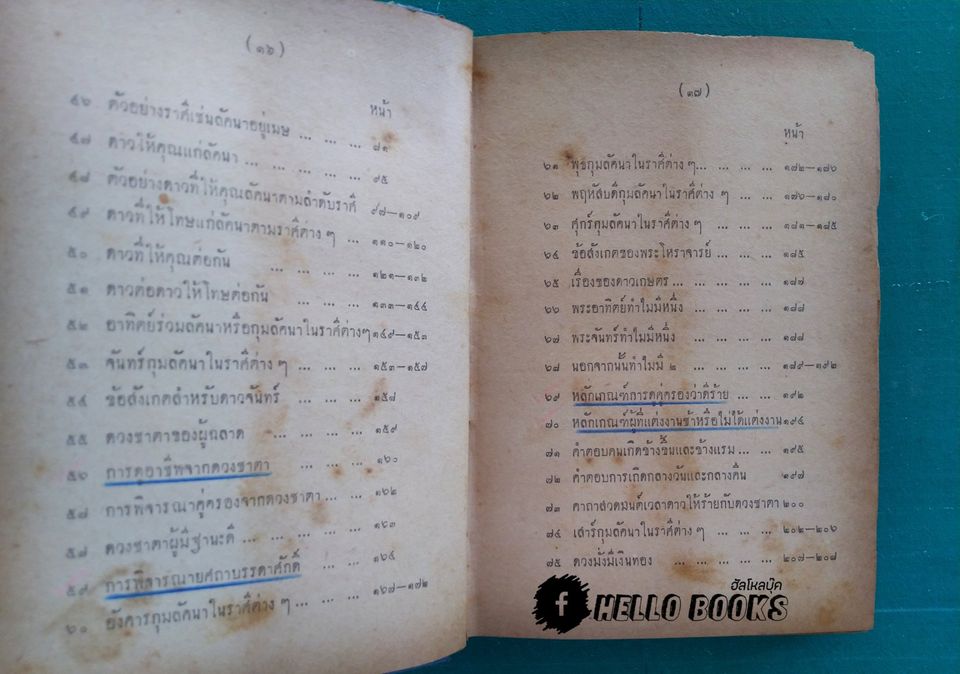 (๑๖)
หน้า
๔๖ ตัวอย่างราศีเช่นลัคนาอยู่เมษ ... ... ... ๘๑
๔๗ ดาวให้คุณแก่ลัคนา ... ... ... ... ๙๕
๔๘ ตัวอย่างดาวที่ให้คุณลัคนาตามลำดับราศี ๙๗—๑๐๙
๔๙ ดาวที่ให้โทษแก่ลัคนาตามราศีต่าง ๆ ... ๑๑๐—๑๒๐
๕๐ ดาวที่ให้คุณต่อกัน ... ... ... ... ๑๒๑—๑๓๒
๕๑ ดาวต่อดาวให้โทษต่อกัน ... ... ... ๑๓๓—๑๔๔
๕๒ อาทิตย์ร่วมลัคนาหรือกุมลัคนาในราศีต่างๆ ๑๔๙—๑๕๓
๕๓ จันทร์กุมลัคนาในราศีต่าง ๆ ... ... ๑๕๓—๑๕๗
๕๔ ข้อสังเกตสำหรับดาวจันทร์ ... ... ๑๕๗
๕๕ ดวงชาตาของผู้ฉลาด ... ... ... ๑๕๙
๕๖ การดูอาชีพจากดวงชาตา ... ... ... ๑๖๐
๕๗ การพิจารณาคู่ครองจากดวงชาตา ... ... ๑๖๒
๕๘ ดวงชาตาผู้มีฐานะดี ... ... ... ... ๑๖๓
๕๙ การพิจารณายศถาบรรดาศักดิ์ ... ... ๑๖๔
๖๐ อังคารกุมลัคนาในราศีต่าง ๆ ... ... ๑๖๗—๑๗๒
(๑๗)
หน้า
๖๑ พุธกุมลัคนาในราศีต่าง ๆ... ... ... ... ๑๗๒—๑๗๖
๖๒ พฤหัสบดีกุมลัคนาในราศีต่าง ๆ ... ... ๑๗๖—๑๘๐
๖๓ ศุกร์กุมลัคนาในราศีต่าง ๆ ... ... ... ๑๘๑—๑๘๕
๖๔ ข้อสังเกตของพระโหราจารย์ ... ... ... ๑๘๕
๖๕ เรื่องของดาวเกษตร ... ... ... ... ๑๘๗
๖๖ พระอาทิตย์ทำไมมีหนึ่ง ... ... ... ๑๘๘
๖๗ พระจันทร์ทำไมมีหนึ่ง ... ... ... ๑๘๘
๖๘ นอกจากนั้นทำไมมี ๒ ... ... ... ... ๑๘๙—๑๙๒
๖๙ หลักเกณฑ์การดูคู่ครองว่าดีร้าย ... ... ๑๙๒
๗๐ หลักเกณฑ์ผู้ที่แต่งงานช้าหรือไม่ได้แต่งงาน ๑๙๔
๗๑ คำตอบคนเกิดข้างขึ้นและข้างแรม ... ... ๑๙๕
๗๒ คำตอบการเกิดกลางวันและกลางคืน ... ๑๙๗
๗๓ คาถาสวดมนต์เวลาดาวให้ร้ายกับดวงชาตา ๒๐๐
๗๔ เสาร์กุมลัคนาในราศีต่าง ๆ ... ... ... ๒๐๒—๒๐๖
๗๕ ดวงมั่งมีเงินทอง ... ... ... ... ... ๒๐๗—๒๐๘
ฮัลโหลบุ๊ค
HELLO BOOKS